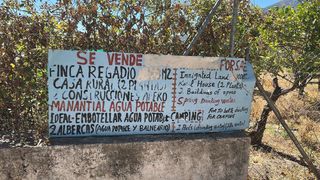 SE VENDE
FINCA REGADIO M2
CASA RURAL (2 PLANTAS)
2 CONSTRUCCIONES APEKO
MANANTIAL AGUA POTABLE
IDEAL-EMBOTELLAR AGUA POTABLE CAMPING
2 ALBERCAS (AGUA POTABLE Y BALNEARIO)
FORSA
Irrigated Land
Rural House (2 Plants)
2 Buildings of
Spring Drinking water
For to bottle drinking
2 Pools (drinking water